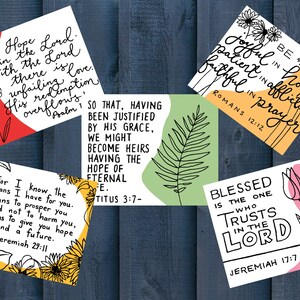 Hope
in the Lord
with the Lord
there is
unfailing love
His redemption
overflows.
Psalm
BE
Joyful in hope
patient in affliction
faithful in prayer
ROMANS 12:12
SO THAT, HAVING
BEEN JUSTIFIED
BY HIS GRACE,
WE MIGHT
BECOME HEIRS
HAVING THE
HOPE OF
ETERNAL
LIFE.
TITUS 3:7-
For I know the
plans I have for you,
plans to prosper you
and not to harm you,
plans to give you hope
and a future.
Jeremiah 29:11
BLESSED
IS THE ONE
WHO
TRUSTS
IN THE
LORD
JEREMIAH 17:7